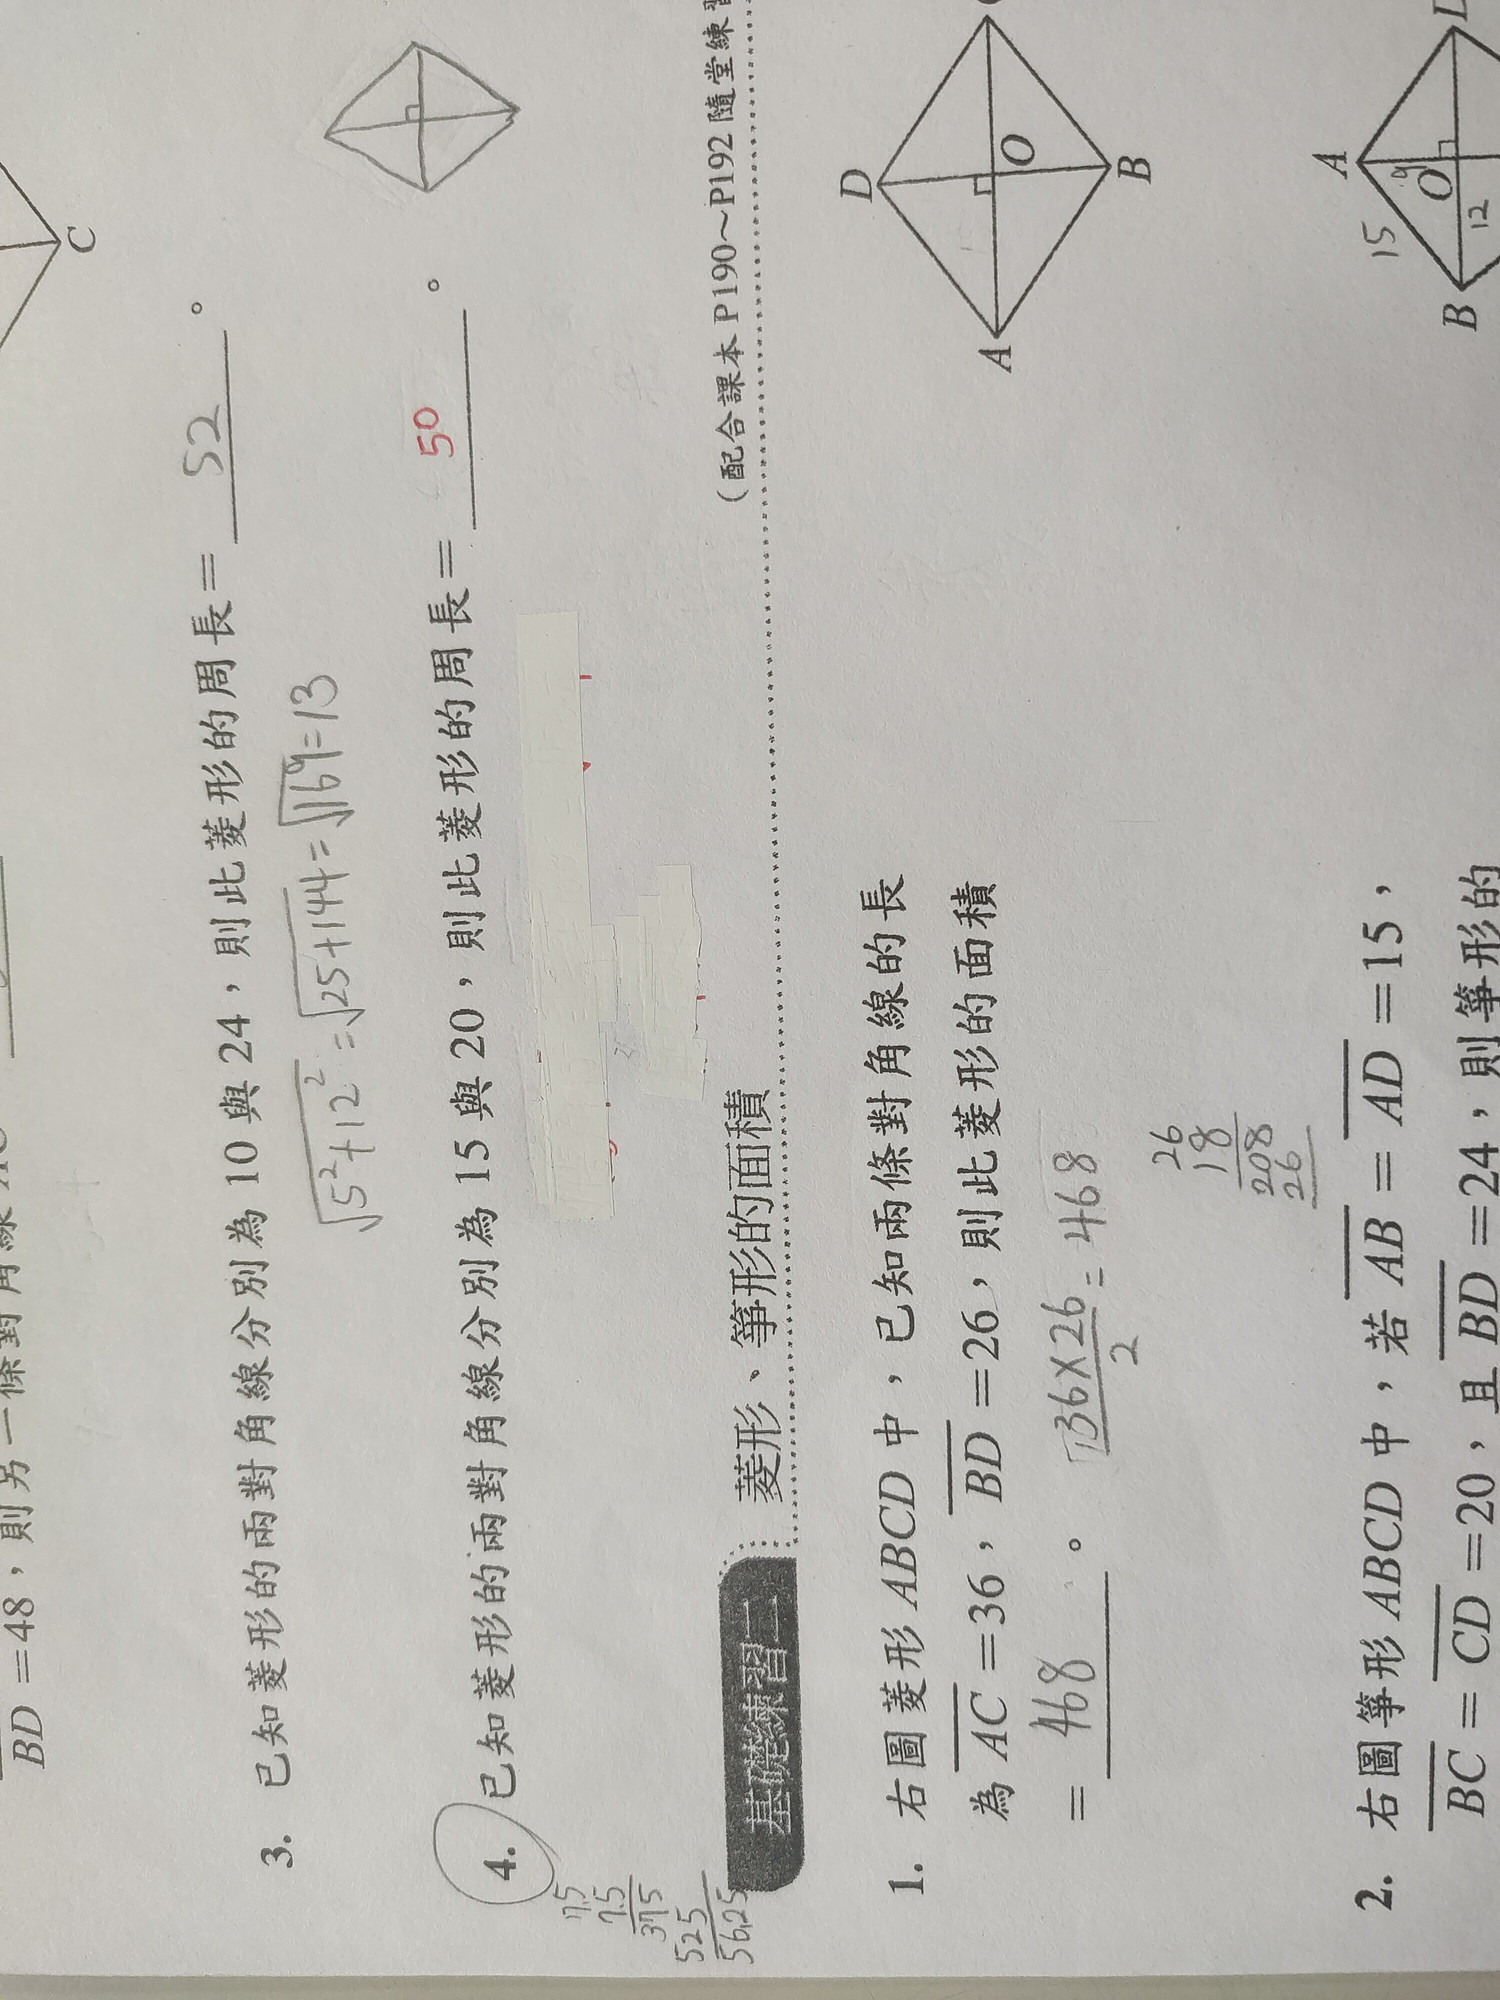 BD=48，則另一條對角線
C
3. 已知菱形的兩對角線分別為 10 與 24，則此菱形的周長= 52 。
√5²+12² =√25+144=√169=13
4. 已知菱形的兩對角線分別為 15 與 20，則此菱形的周長= 50 。
7.5
7.5
375
525
56.25
基礎練習二 菱形、箏形的面積 (配合課本 P190～P192 隨堂練習
1. 右圖菱形 ABCD 中，已知兩條對角線的長
為 AC=36，BD=26，則此菱形的面積
= 468 。 36×26
2
=468
26
18
208
26
D
A
O
B
2. 右圖箏形 ABCD 中，若 AB=AD=15，
BC=CD=20，且 BD=24，則箏形的
A
15
9
O
12
B